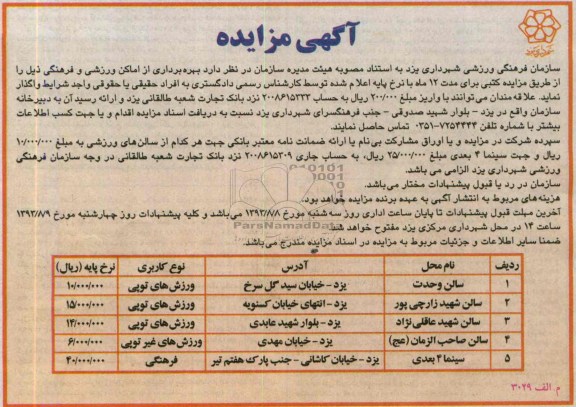 آگهی مزایده
سازمان فرهنگی ورزشی شهرداری یزد به استناد مصوبه هیئت مدیره سازمان در نظر دارد بهره برداری از اماکن ورزشی و فرهنگی ذیل را
از طریق مزایده کتبی برای مدت ۱۲ ماه با نرخ پایه اعلام شده توسط کارشناس رسمی دادگستری به افراد حقیقی یا حقوقی واجد شرایط واگذار
نماید. علاقه مندان می‌توانند با واریز مبلغ ۲۰۰/۰۰۰ ریال به حساب ۲۰۰۸۶۱۵۳۳۳ نزد بانک تجارت شعبه طالقانی یزد و ارائه رسید آن به دبیرخانه
سازمان واقع در یزد - بلوار شهید صدوقی - جنب فرهنگسرای شهرداری یزد نسبت به دریافت اسناد مزایده اقدام و یا جهت کسب اطلاعات
بیشتر با شماره تلفن ۷۲۵۴۴۴۴-۰۳۵۱ تماس حاصل نمایند.
سپرده شرکت در مزایده و یا اوراق مشارکت بی‌نام یا ارائه ضمانت نامه معتبر بانکی جهت هر کدام از سالن‌های ورزشی به مبلغ ۱۰/۰۰۰/۰۰۰
ریال و جهت سینما ۴ بعدی مبلغ ۲۵/۰۰۰/۰۰۰ ریال، به حساب جاری ۲۰۰۸۶۱۵۳۰۹ نزد بانک تجارت شعبه طالقانی در وجه سازمان فرهنگی
ورزشی شهرداری یزد الزامی می باشد.
سازمان در رد یا قبول پیشنهادات مختار می‌باشد.
هزینه‌های مربوط به انتشار آگهی به عهده برنده مزایده خواهد بود.
آخرین مهلت قبول پیشنهادات تا پایان ساعت اداری روز سه شنبه مورخ ۱۳۹۳/۸/۸ می‌باشد و کلیه پیشنهادات روز چهارشنبه مورخ ۱۳۹۳/۸/۹
ساعت ۱۴ در محل شهرداری مرکزی یزد مفتوح خواهد شد.
ضمنا سایر اطلاعات و جزئیات مربوط به مزایده در اسناد مزایده مندرج می‌باشد.
ParsNamadData
ردیف نام محل آدرس نوع کاربری نرخ پایه (ریال)
۱ سالن وحدت یزد - خیابان سید گل سرخ ورزش‌های توپی ۱۰/۰۰۰/۰۰۰
۲ سالن شهید زارچی پور یزد - انتهای خیابان کسنویه ورزش‌های توپی ۱۵/۰۰۰/۰۰۰
۳ سالن شهید عاقلی نژاد یزد - بلوار شهید عابدی ورزش‌های توپی ۱۴/۰۰۰/۰۰۰
۴ سالن صاحب الزمان (عج) یزد - خیابان مهدی ورزش‌های غیر توپی ۶/۰۰۰/۰۰۰
۵ سینما ۴ بعدی یزد - خیابان کاشانی - جنب پارک هفتم تیر فرهنگی ۴۰/۰۰۰/۰۰۰
م. الف ۳۰۲۹